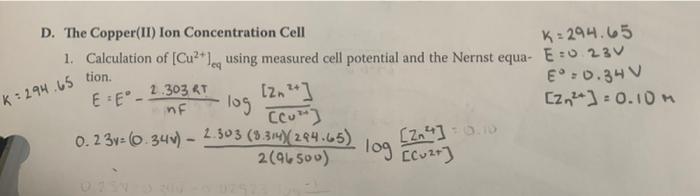 D. The Copper(II) Ion Concentration Cell
K = 294.65
1. Calculation of [Cu²⁺]eq using measured cell potential and the Nernst equa-
tion.
E = 0.23V
E° = 0.34V
[Zn²⁺] = 0.10 M
K = 294.65
E = E° - 2.303 RT / nF log [Zn²⁺] / [Cu²⁺]
0.23v = (0.34v) - 2.303 (8.314)(294.65) / 2(96500) log [Zn²⁺] = 0.10 / [Cu²⁺]